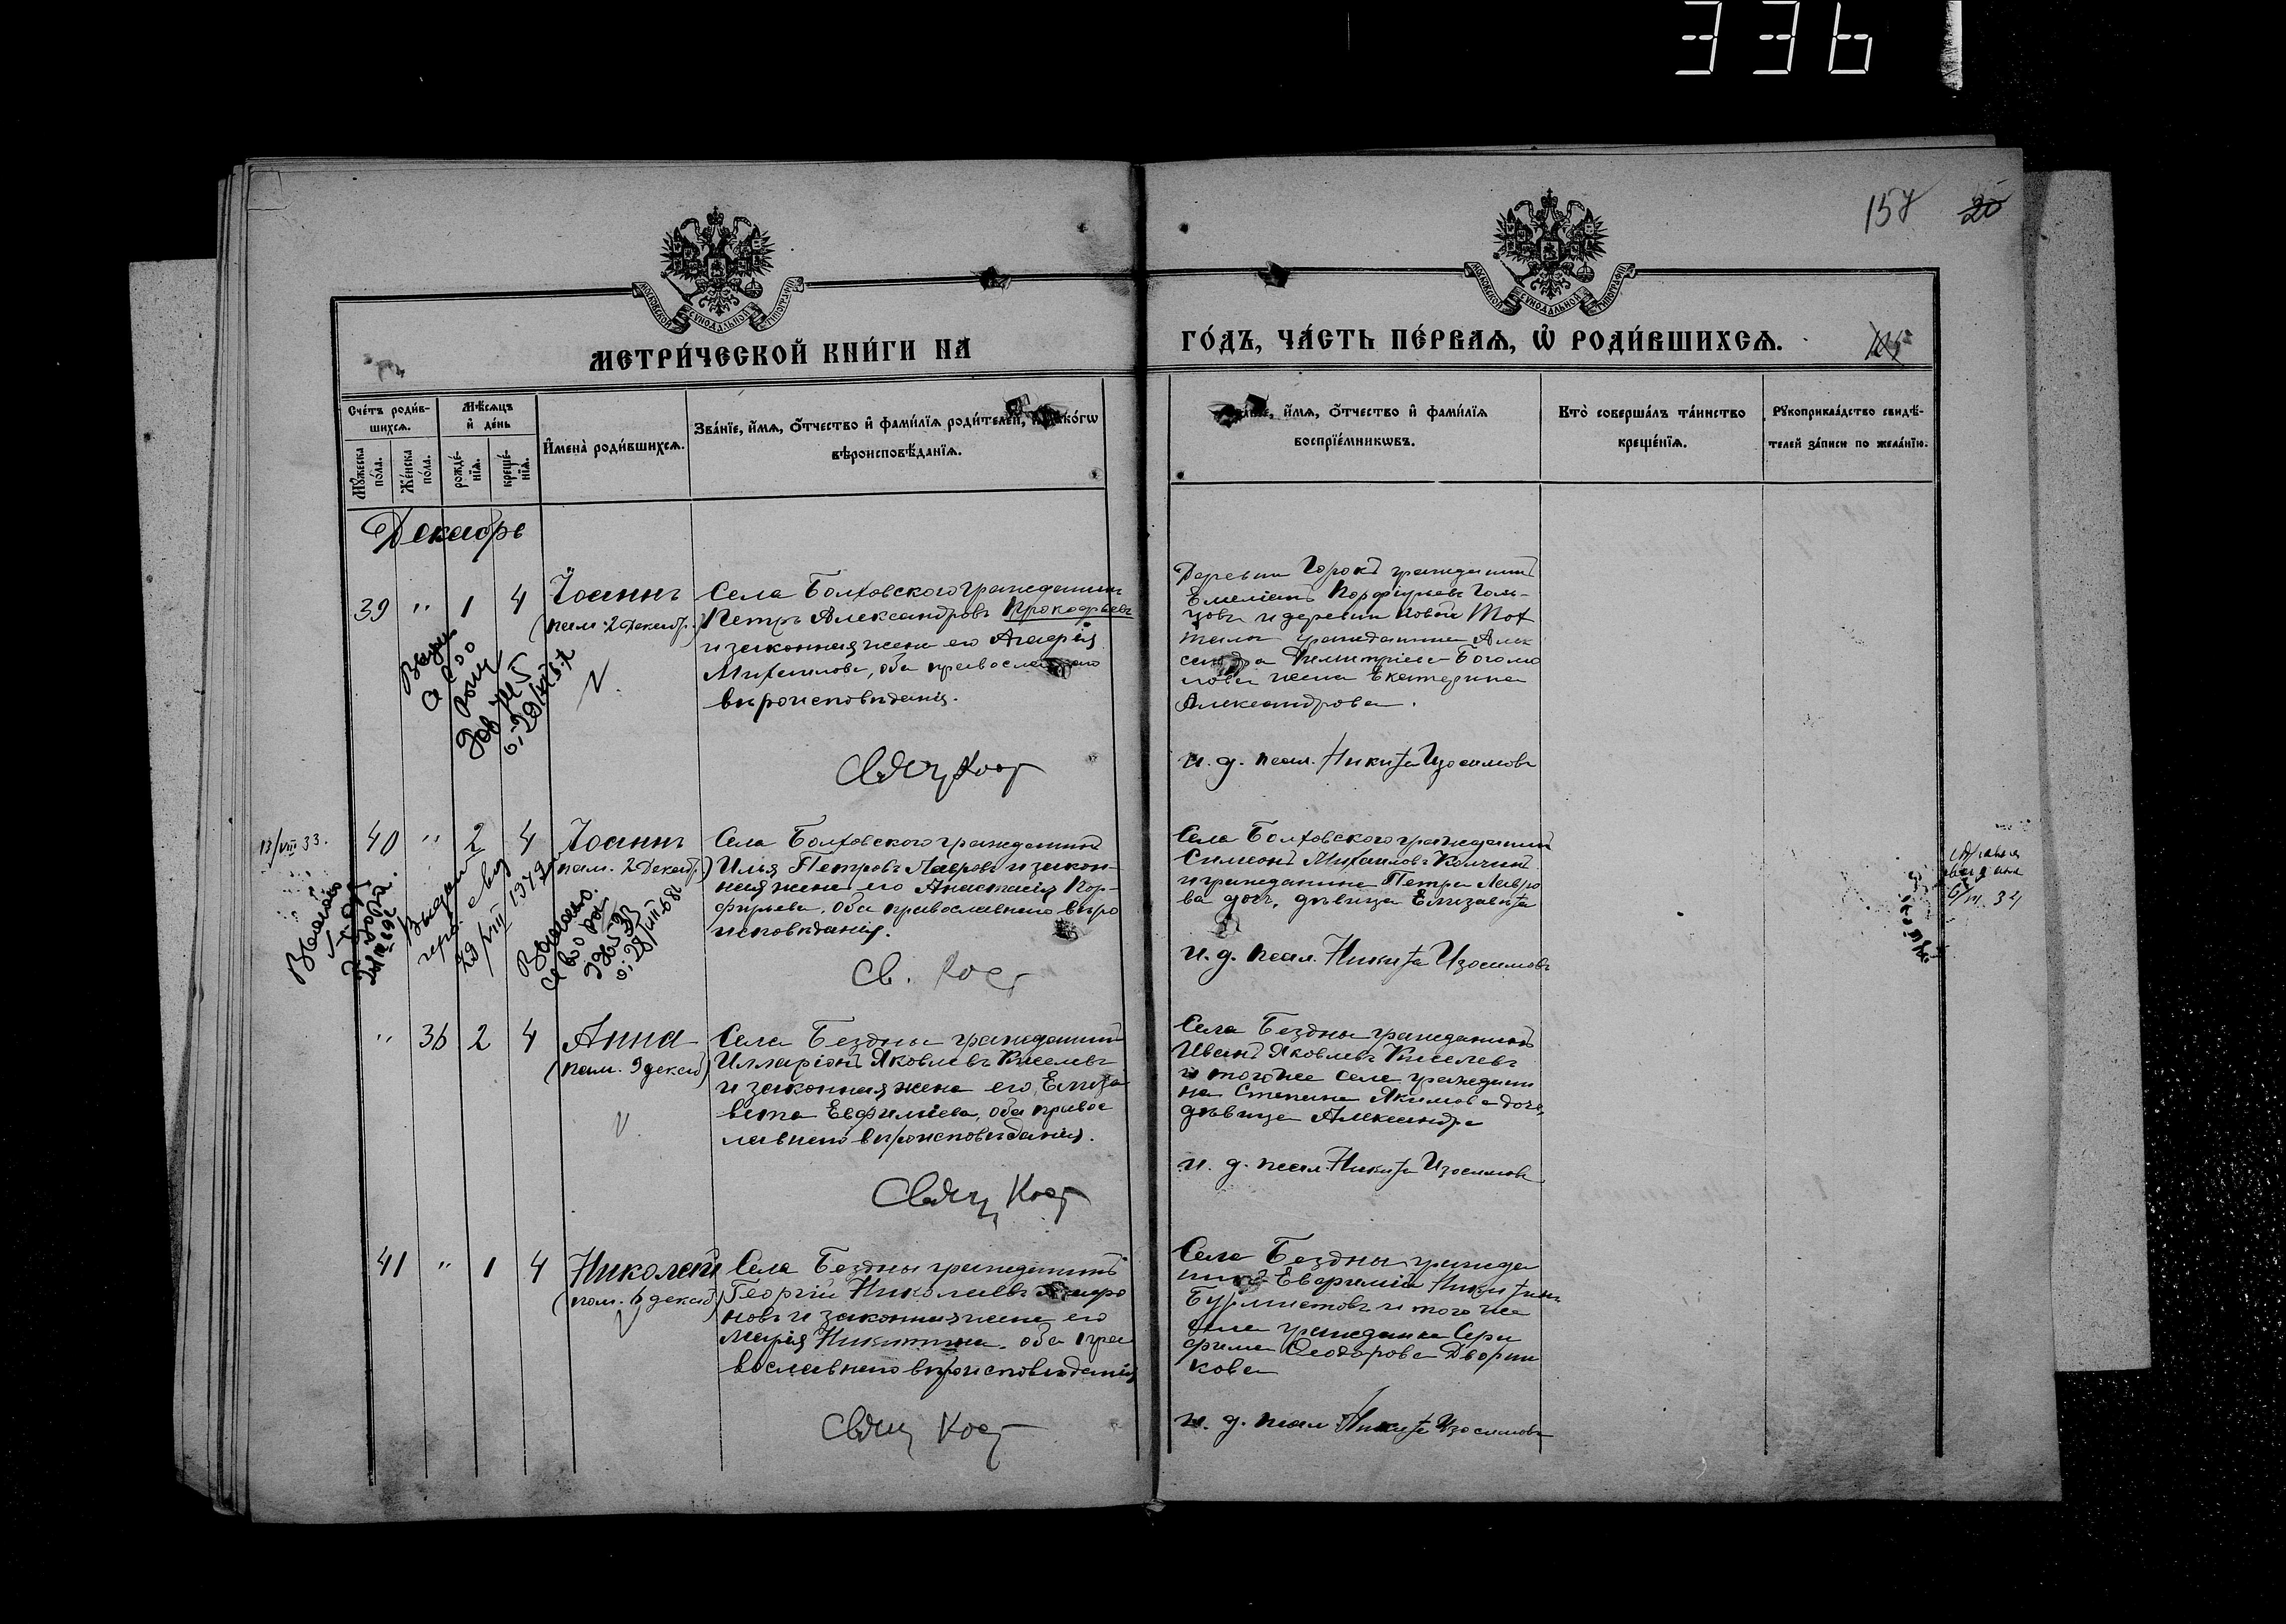 336
157
20
МОСКОВСКОЙ СУНОДАЛЬНОЙ ТИПОГРАФІИ
МОСКОВСКОЙ СУНОДАЛЬНОЙ ТИПОГРАФІИ
МЕТРИ́ЧЕСКОЙ КНИ́ГИ НА
ГО́ДЪ, ЧА́СТЬ ПЕ́РВАѦ, Ѡ҆ РОДИ́ВШИХСѦ.
Сче́тъ роди́в-
шихсѧ.
Мꙋ́жеска по́ла.
Же́нска по́ла.
Мѣ́сѧцъ
и҆ де́нь
рожде́-
нїѧ.
креще́-
нїѧ.
И҆мена̀ роди́вшихсѧ.
Зва́нїе, и҆́мѧ, ѻ҆́тчество и҆ фами́лїѧ роди́телей, како́гѡ
вѣроисповѣ́данїѧ.
и҆́мѧ, ѻ҆́тчество и҆ фами́лїѧ
воспрїе́мникѡвъ.
Кто̀ соверша́лъ та́инство
креще́нїѧ.
Рꙋкоприкла́дство свидѣ́-
телей за́писи по жела́нїю.
Декабрь
39 " 1 4
Іоаннъ
(пам. 2 Декабр.)
Села Болховского гражданинъ
Петръ Александровъ Прокофьевъ
и законная жена его Агафія
Михаилова, оба православнаго
вѣроисповѣданія.
Свящ Кост
Деревни Горокъ гражданинъ
Емеліанъ Порфирьевъ Голь-
цовъ и деревни Новой
гражданина Алек
сандра Димитріева Богомо
лова жена Екатерина
Александрова.
и. д. псал. Никита Изосимовъ
13/VIII 33.
40 " 2 4
Іоаннъ
пам. 2 Декабр)
Села Болховского гражданинъ
Илья Петровъ Лавровъ и закон-
ная жена его Анастасія Пор-
фирьева, оба православнаго вѣро
исповѣданія.
Св. Кост
Села Болховского гражданинъ
Симеонъ Михаиловъ Колчинъ
и гражданина Петра Лавро
ва дочь, дѣвица Елизавета
и. д. псал. Никита Изосимовъ
" 36 2 4
Анна
(пам. 9 декаб)
Села Бездны гражданинъ
Илларіонъ Яковлевъ Киселевъ
и законная жена его Елиза
вета Евфиміева, оба правос
лавнаго вѣроисповѣданія.
Свящ Кост
Села Бездны гражданинъ
Иванъ Яковлевъ Киселевъ
и того же села граждани
на Степана Якимова дочь,
дѣвица Александра
и. д. псал. Никита Изосимовъ
41 " 1 4
Николай
(пам. 6 декаб)
Села Бездны гражданинъ
Георгій Николаевъ
новъ и законная жена его
Марія Никитина, оба пра
вославнаго вѣроисповѣданія
Свящ Кост
Села Бездны гражда
нинъ Евфимій Никитинъ
Бурмистовъ и того же
села гражданка Сера
фима Ѳеодорова Дворни
кова
и. д. псал Никита Изосимовъ